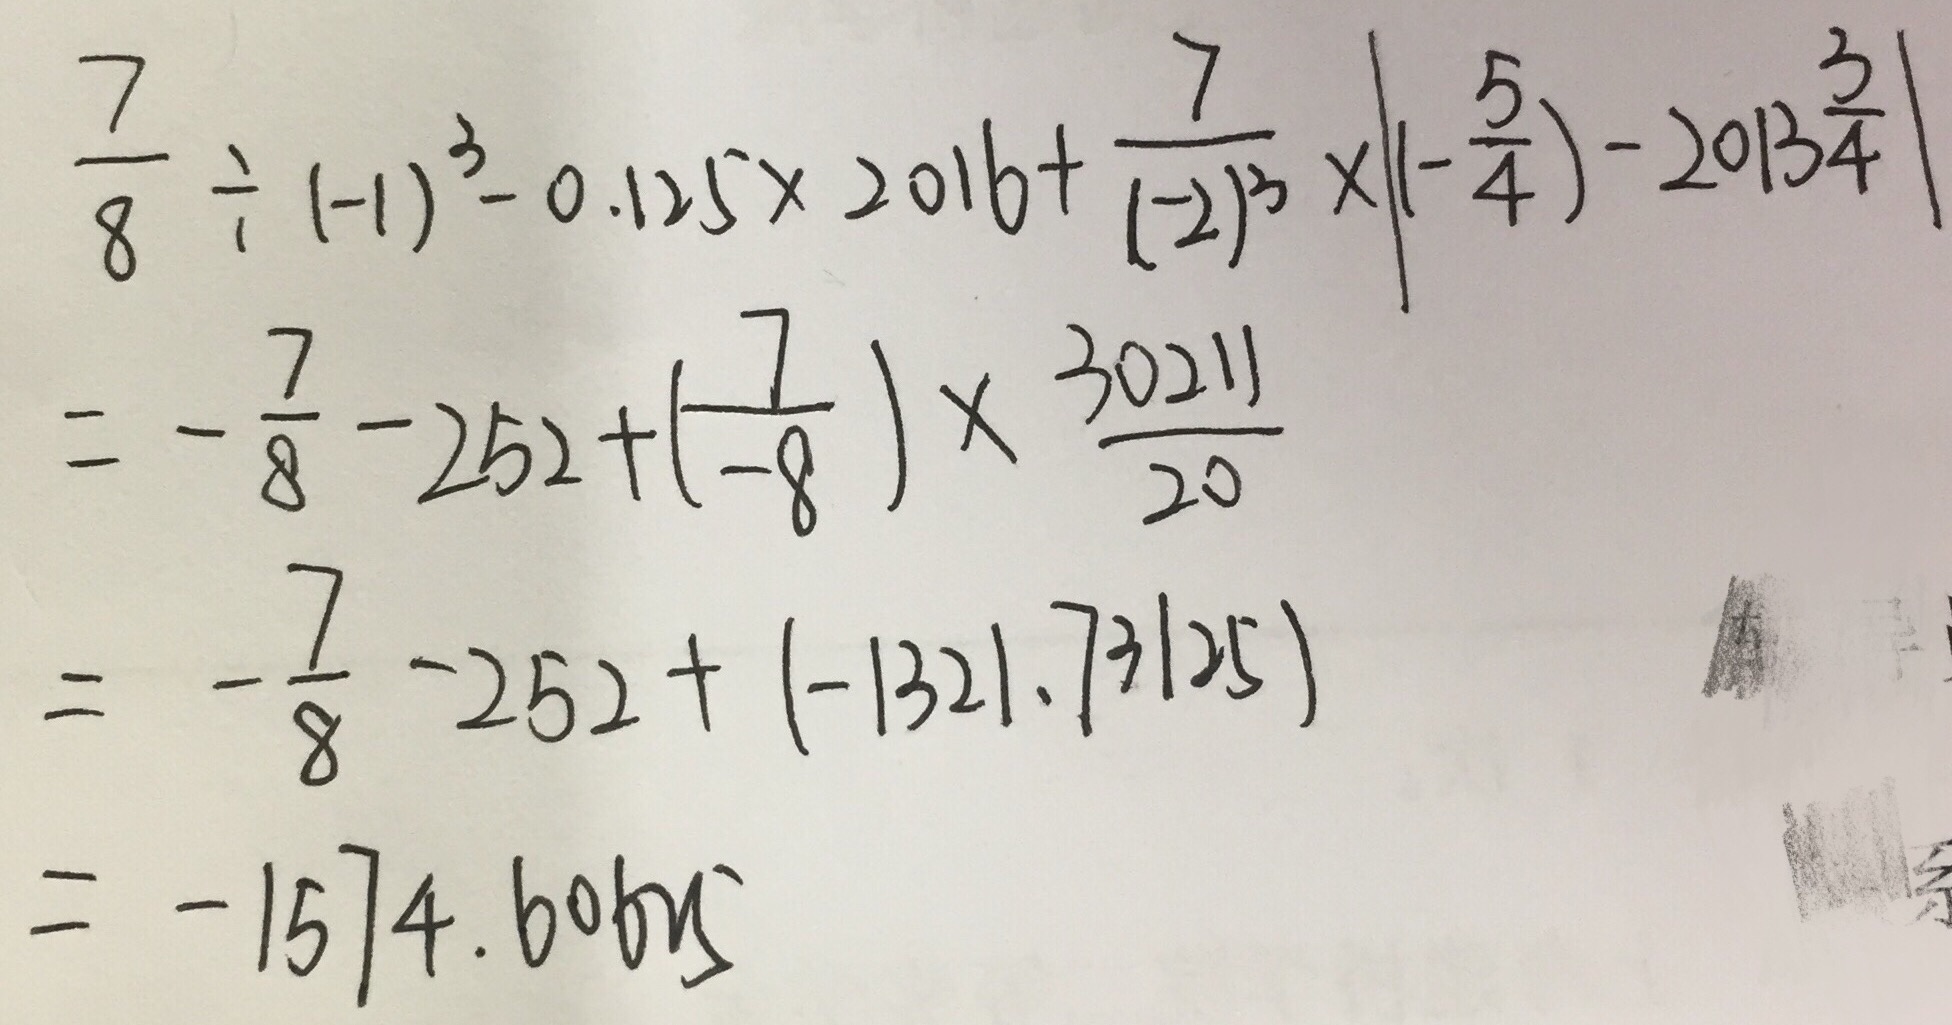 7/8 ÷ (-1)³ - 0.125 × 2016 + 7/(-2)³ × |(-5/4) - 2013 3/4|
= -7/8 - 252 + (7/-8) × 30211/20
= -7/8 - 252 + (-1321.73125)
= -1574.60625